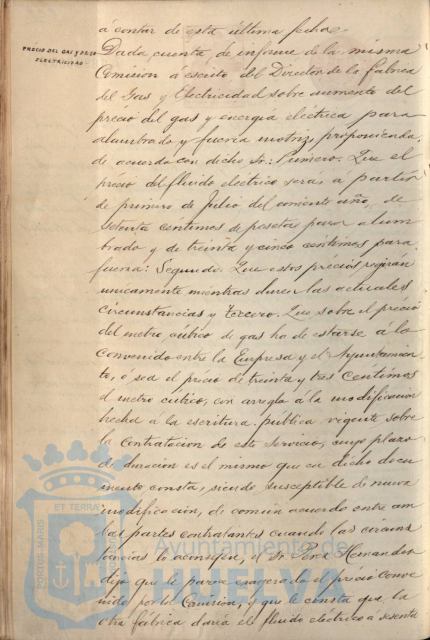 á contar de esta última fecha.
PRECIO DEL GAS Y DE LA
ELECTRICIDAD
Dada cuenta de informe de la misma
Comision á escrito del Director de la fabrica
del Gas y Electricidad sobre aumento del
precio del gas y energia eléctrica para
alumbrado y fuerza motriz, proponiendo,
de acuerdo con dicho Sr: Primero. Que el
précio del fluido eléctrico será, a partir
de primero de Julio del corriente año, de
setenta centimos de pesetas para alum
brado y de treinta y cinco centimos para
fuerza: Segundo. Que estos précios regirán
unicamente mientras duren las actuales
circunstancias y tercero. Que sobre el précio
del metro cúbico de gas ha de estarse a lo
convenido entre la Empresa y el Ayuntamien
to, ó sea el précio de treinta y tres centimos
el metro cubico, con arreglo á la modificacion
hecha á la escritura publica vigente sobre
la contratacion de este servicio, cuyo plazo
de duracion es el mismo que en dicho docu
mento consta, siendo susceptible de nueva
modificacion, de comun acuerdo entre am
bas partes contratantes cuando las circuns
tancias lo aconsejen, el Sr. Perez Hernandez
dijo que le parece exagerado el précio conve
nido por la Comision, y que le consta que la
otra fábrica daria el fluido eléctrico á sesenta
PORTUS MARIS ET TERRAE
Ayuntamiento de
HUELVA